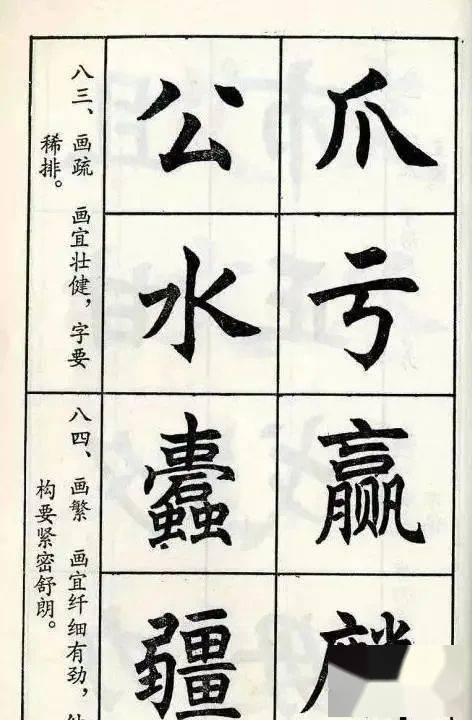 八三、画疏 画宜壮健，字要
稀排。
公 爪
水 亏
八四、画繁 画宜纤细有劲，
构要紧密舒朗。
蠹 赢
疆